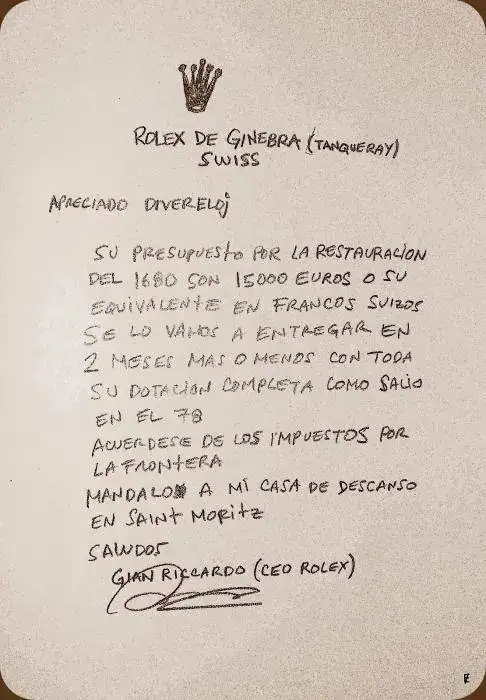 ROLEX DE GINEBRA (TANQUERAY)
SWISS
APRECIADO DIVERELOJ
SU PRESUPUESTO POR LA RESTAURACION
DEL 1680 SON 15000 EUROS O SU
EQUIVALENTE EN FRANCOS SUIZOS
SE LO VAMOS A ENTREGAR EN
2 MESES MAS O MENOS CON TODA
SU DOTACION COMPLETA COMO SALIO
EN EL 78
ACUERDESE DE LOS IMPUESTOS POR
LA FRONTERA
MANDALO A MI CASA DE DESCANSO
EN SAINT MORITZ
SALUDOS
GIAN RICCARDO (CEO ROLEX)